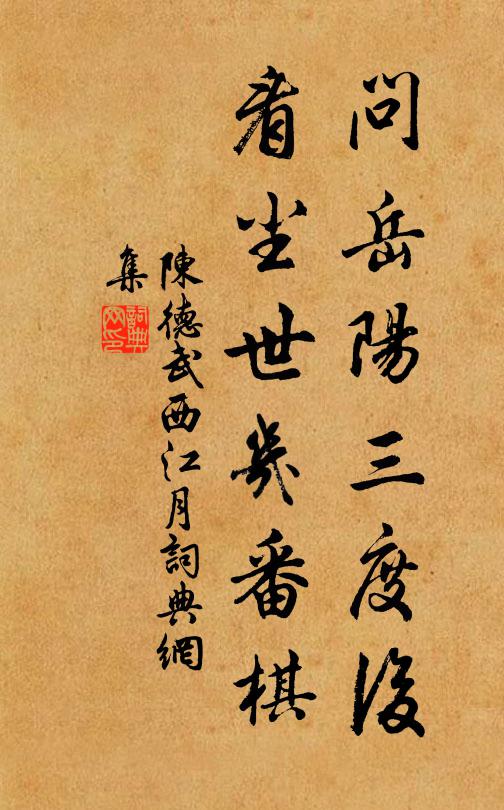 問岳陽三度後
看尘世幾番棋
陳德武西江月詞典網
集
詞典
网印